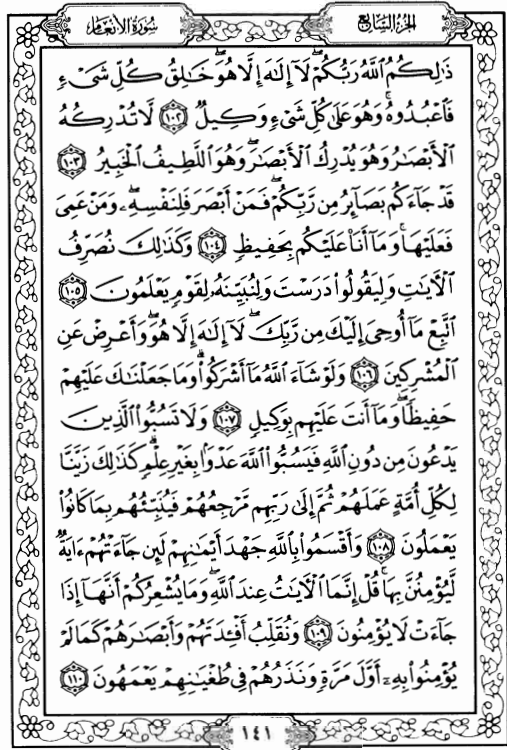 الجزء السابع
سورة الأنعام
ذَٰلِكُمُ ٱللَّهُ رَبُّكُمْۖ لَآ إِلَٰهَ إِلَّا هُوَۖ خَٰلِقُ كُلِّ شَىْءٍ
فَٱعْبُدُوهُۚ وَهُوَ عَلَىٰ كُلِّ شَىْءٍ وَكِيلٌ ١٠٢ لَّا تُدْرِكُهُ
ٱلْأَبْصَٰرُ وَهُوَ يُدْرِكُ ٱلْأَبْصَٰرَۖ وَهُوَ ٱللَّطِيفُ ٱلْخَبِيرُ ١٠٣
قَدْ جَآءَكُم بَصَآئِرُ مِن رَّبِّكُمْۖ فَمَنْ أَبْصَرَ فَلِنَفْسِهِۦۖ وَمَنْ عَمِىَ
فَعَلَيْهَاۚ وَمَآ أَنَا۠ عَلَيْكُم بِحَفِيظٍ ١٠٤ وَكَذَٰلِكَ نُصَرِّفُ
ٱلْأٓيَٰتِ وَلِيَقُولُوا۟ دَرَسْتَ وَلِنُبَيِّنَهُۥ لِقَوْمٍ يَعْلَمُونَ ١٠٥
ٱتَّبِعْ مَآ أُوحِىَ إِلَيْكَ مِن رَّبِّكَۖ لَآ إِلَٰهَ إِلَّا هُوَۖ وَأَعْرِضْ عَنِ
ٱلْمُشْرِكِينَ ١٠٦ وَلَوْ شَآءَ ٱللَّهُ مَآ أَشْرَكُوا۟ۗ وَمَا جَعَلْنَٰكَ عَلَيْهِمْ
حَفِيظًاۖ وَمَآ أَنتَ عَلَيْهِم بِوَكِيلٍ ١٠٧ وَلَا تَسُبُّوا۟ ٱلَّذِينَ
يَدْعُونَ مِن دُونِ ٱللَّهِ فَيَسُبُّوا۟ ٱللَّهَ عَدْوًۢا بِغَيْرِ عِلْمٍۗ كَذَٰلِكَ زَيَّنَّا
لِكُلِّ أُمَّةٍ عَمَلَهُمْ ثُمَّ إِلَىٰ رَبِّهِم مَّرْجِعُهُمْ فَيُنَبِّئُهُم بِمَا كَانُوا۟
يَعْمَلُونَ ١٠٨ وَأَقْسَمُوا۟ بِٱللَّهِ جَهْدَ أَيْمَٰنِهِمْ لَئِن جَآءَتْهُمْ ءَايَةٌ
لَّيُؤْمِنُنَّ بِهَاۚ قُلْ إِنَّمَا ٱلْأٓيَٰتُ عِندَ ٱللَّهِۖ وَمَا يُشْعِرُكُمْ أَنَّهَآ إِذَا
جَآءَتْ لَا يُؤْمِنُونَ ١٠٩ وَنُقَلِّبُ أَفْـِٔدَتَهُمْ وَأَبْصَٰرَهُمْ كَمَا لَمْ
يُؤْمِنُوا۟ بِهِۦٓ أَوَّلَ مَرَّةٍ وَنَذَرُهُمْ فِى طُغْيَٰنِهِمْ يَعْمَهُونَ ١١٠
١٤١